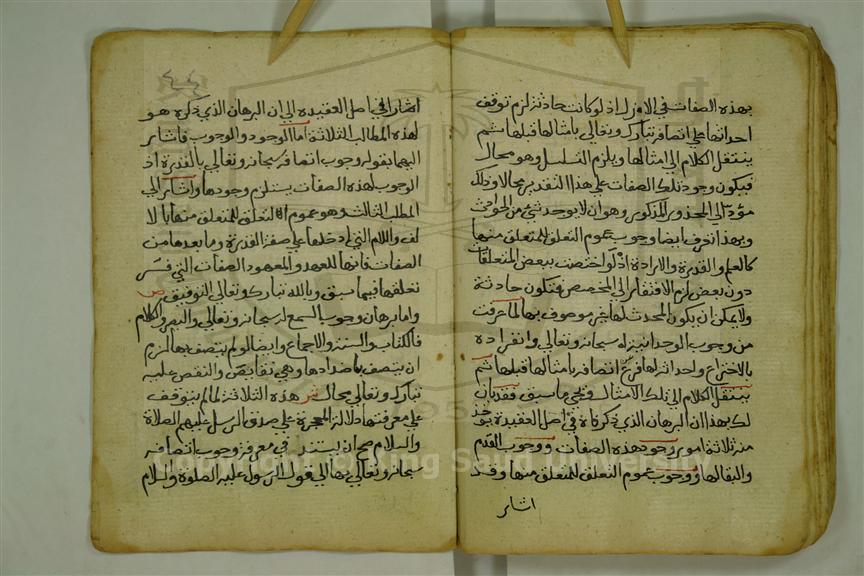 بهذه الصفات في الازل اذ لو كانت حادثة لزم توقف
احداثها على اتصافه تبارك وتعالى بامثالها قبلها ثم
ينتقل الكلام الى امثالها ويلزم التسلسل وهو محال
فيكون وجود تلك الصفات على هذا التقدير محالا وذلك
مؤد الى المحذور المذكور وهو ان لا يوجد شيء من الحوادث
وبهذا تعرف ايضا وجوب عموم التعلق للمتعلق منها
كالعلم والقدرة والارادة اذ لو اختصت ببعض المتعلقات
دون بعض لزم الافتقار الى المخصص فتكون حادثة
ولا يمكن ان يكون المحدث لها غير موصوف بها لما عرفت
من وجوب الوحدانية له سبحانه وتعالى وانفراده
بالاختراع واحداثه لها فرع اتصافه بامثالها قبلها ثم
ينتقل الكلام الى تلك الامثال ويجيء ما سبق فقد بان
لك بهذا ان البرهان الذي ذكرناه في اصل العقيدة يؤخذ
منه ثلاثة امور وجود هذه الصفات ووجوب القدم
والبقا لها ووجوب عموم التعلق للمتعلق منها وقد
اشار
اشار في اصل العقيدة الى ان البرهان الذي ذكره هو
لهذه المطالب الثلاثة اما الوجود والوجوب فاشار
اليهما بقوله وجوب اتصافه سبحانه وتعالى بالقدرة اذ
الوجوب لهذه الصفات يستلزم وجودها واشار الى
المطلب الثالث وهو عموم التعلق للمتعلق منها بالا
لف واللام التي ادخلها على صفة القدرة وما بعدها من
الصفات فانها للعهد والمعهود الصفات التي فسر
تعلقها فيما سبق وبالله تبارك وتعالى التوفيق ص
واما برهان وجوب السمع له سبحانه وتعالى والبصر والكلام
فالكتاب والسنة والاجماع وايضا لو لم يتصف بها لزم
ان يتصف باضدادها وهي نقايص والنقص عليه
تبارك وتعالى محال ش هذه الثلاثة لما لم يتوقف
على معرفتها دلالة المعجزة على صدق الرسل عليهم الصلاة
والسلام صح ان يستند في معرفة وجوب اتصافه
سبحانه وتعالى بها الى قول الرسول عليه الصلوة والسلام